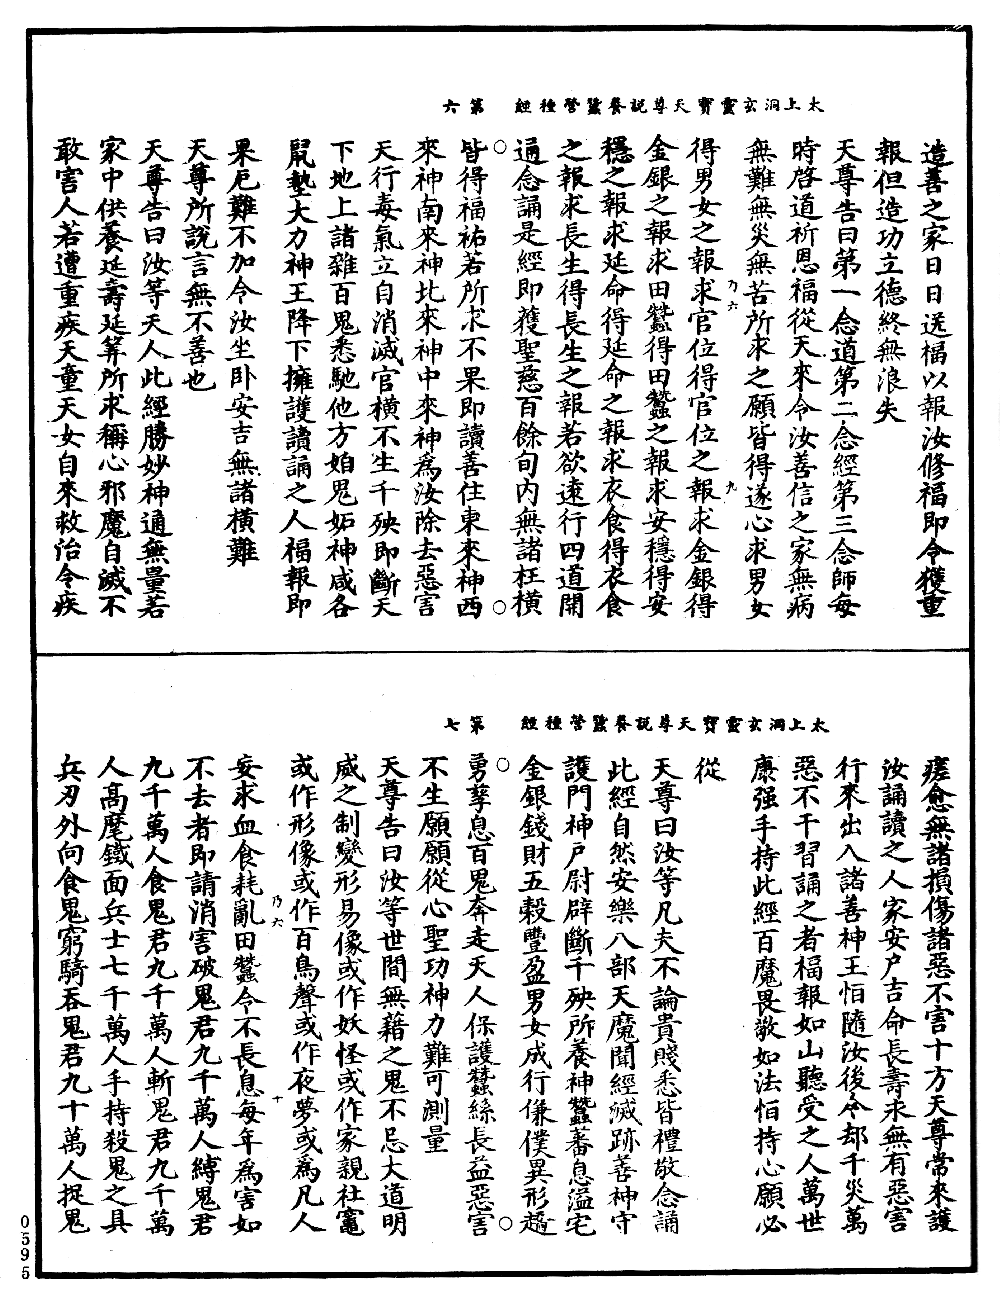 太上洞玄靈寶天尊說養蠶營種經　第六
造善之家日日送福以報汝修福即令獲重
報但造功立德終無浪失
天尊告曰第一念道第二念經第三念師每
時啓道祈恩福從天來令汝善信之家無病
無難無災無苦所求之願皆得遂心求男女
乃六
九
得男女之報求官位得官位之報求金銀得
金銀之報求田蠶得田蠶之報求安穩得安
穩之報求延命得延命之報求衣食得衣食
之報求長生得長生之報若欲遠行四道開
通念誦是經即獲聖慈百餘旬内無諸枉橫
皆得福祐若所求不果即讀善住東來神西
來神南來神北來神中來神爲汝除去惡害
天行毒氣立自消滅官橫不生千殃即斷天
下地上諸雜百鬼悉馳他方妲鬼妬神咸各
鼠蟄大力神王降下擁護讀誦之人福報即
果厄難不加令汝坐卧安吉無諸橫難
天尊所說言無不善也
天尊告曰汝等天人此經勝妙神通無量若
家中供養延壽延筭所求稱心邪魔自滅不
敢害人若遭重疾天童天女自來救治令疾
太上洞玄靈寶天尊說養蠶營種經　第七
瘥愈無諸損傷諸惡不害十方天尊常來護
汝誦讀之人家安户吉命長壽永無有惡害
行來出入諸善神王怕隨汝後令却千災萬
惡不干習誦之者福報如山聽受之人萬世
康强手持此經百魔畏敬如法怕持心願必
從
天尊曰汝等凡夫不論貴賤悉皆禮敬念誦
此經自然安樂八部天魔聞經滅跡善神守
護門神户尉辟斷千殃所養神蠶蕃息溢宅
金銀錢財五穀豐盈男女成行傔僕異形趫
勇孳息百鬼奔走天人保護蠶絲長益惡害
不生願願從心聖功神力難可測量
天尊告曰汝等世間無藉之鬼不忌大道明
威之制變形易像或作妖怪或作家親社竈
或作形像或作百鳥聲或作夜夢或爲凡人
乃六
十
妄求血食耗亂田蠶令不長息每年為害如
不去者即請消害破鬼君九千萬人縛鬼君
九千萬人食鬼君九千萬人斬鬼君九千萬
人髙麾鐵面兵士七千萬人手持殺鬼之具
兵刃外向食鬼窮騎吞鬼君九十萬人捉鬼
0595